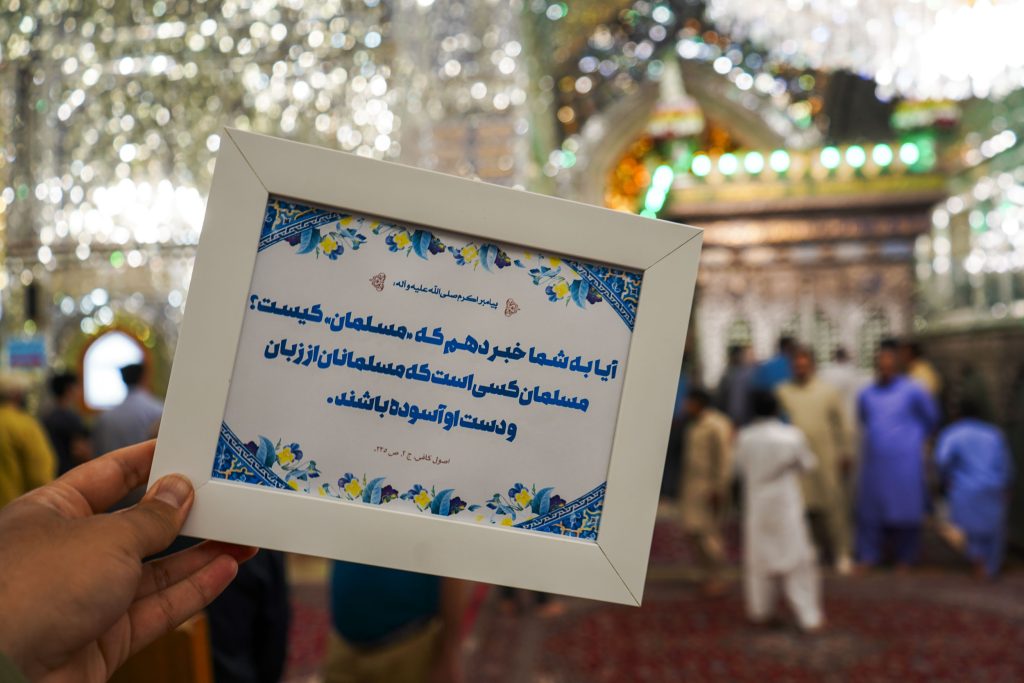 پیامبر اکرم صلی‌الله علیه و آله:
آیا به شما خبر دهم که «مسلمان» کیست؟
مسلمان کسی است که مسلمانان از زبان
و دست او آسوده باشند.
اصول کافی، ج ۲، ص ۲۳۵.